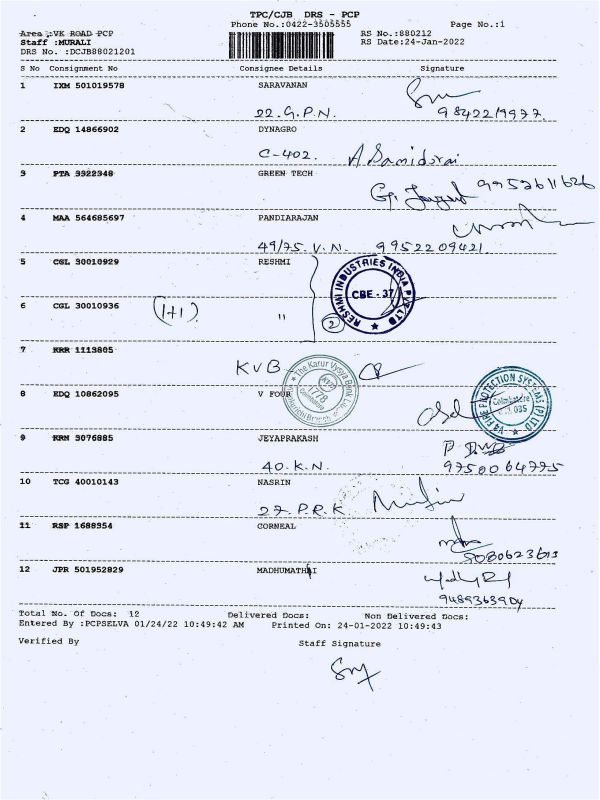 TPC/CJB DRS - PCP
Phone No.:0422-3505555 Page No.:1
Area :VK ROAD PCP RS No.:880212
Staff :MURALI RS Date:24-Jan-2022
DRS No. :DCJB88021201
S No Consignment No Consignee Details Signature
1 IXM 501019578 SARAVANAN
22.G.P.N. 9842219977.
2 EDQ 14866902 DYNAGRO
C-402. A Samidurai
3 PTA 3322348 GREEN TECH
9952611626
4 MAA 564685697 PANDIARAJAN
49/75. V. N. 9952209421.
5 CGL 30010929 RESHMI
RESHMI INDUSTRIES INDIA PVT LTD
CBE - 37
6 CGL 30010936 (1+1) " 2
7 KRR 1113805
KVB
The Karur Vysya Bank Ltd
1778
8 EDQ 10862095 V FOUR
V4 FIRE PROTECTION SYSTEMS (P) LTD
Coimbatore
035
9 KRN 3076885 JEYAPRAKASH
40. K.N. 9750064775
10 TCG 40010143 NASRIN
27. P.R.K
11 RSP 1688354 CORNEAL
12 JPR 501952829 MADHUMATHI
9489363904
Total No. Of Docs: 12 Delivered Docs: Non Delivered Docs:
Entered By :PCPSELVA 01/24/22 10:49:42 AM Printed On: 24-01-2022 10:49:43
Verified By Staff Signature